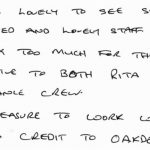 LOVELY TO SEE S
ED AND LOVELY STAFF
TOO MUCH FOR TH
TO BOTH RITA
CREW.
EASURE TO WORK LO
CREDIT TO OAKD